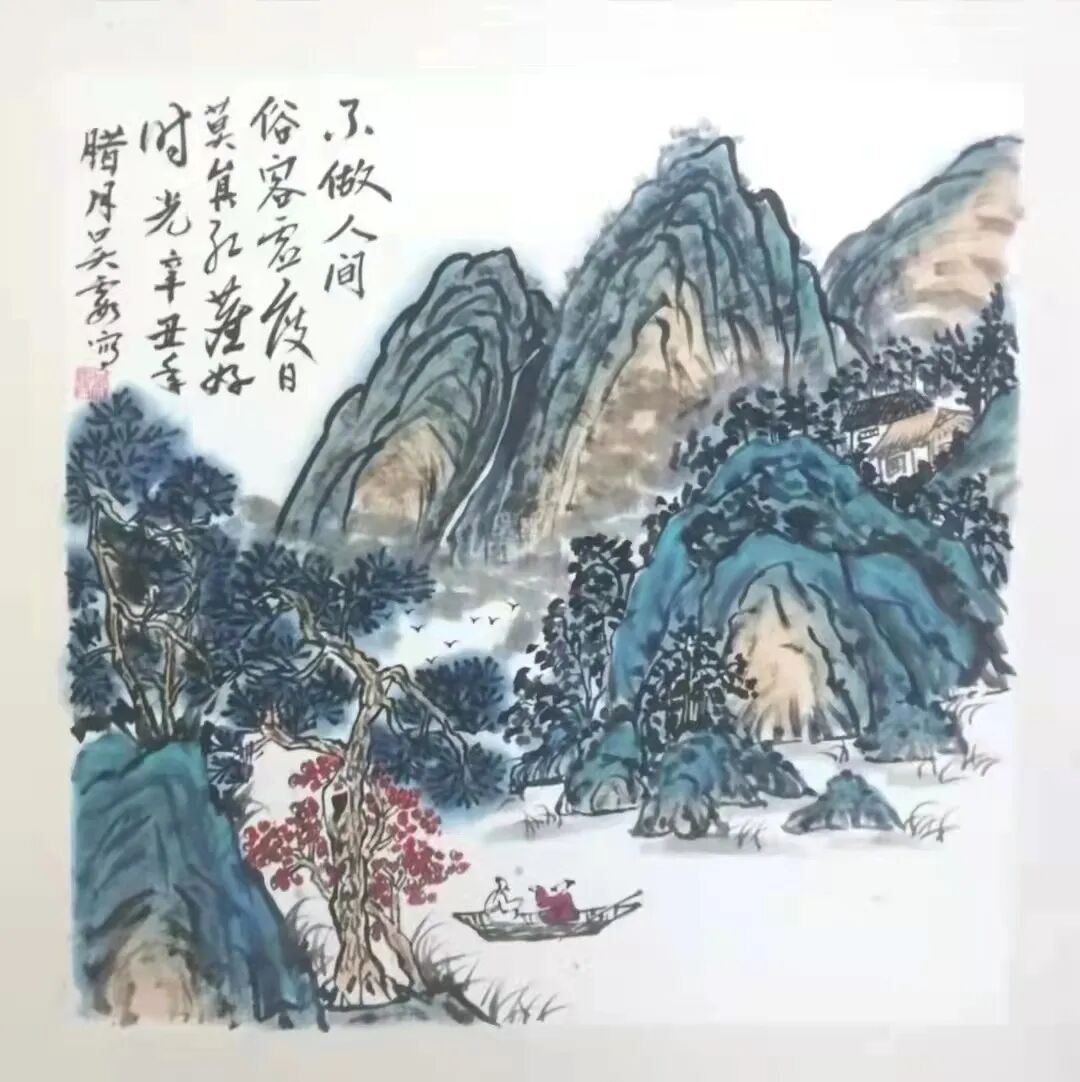 不做人间
俗客虚度日
莫負红塵好
时光辛丑年
腊月吴霞写